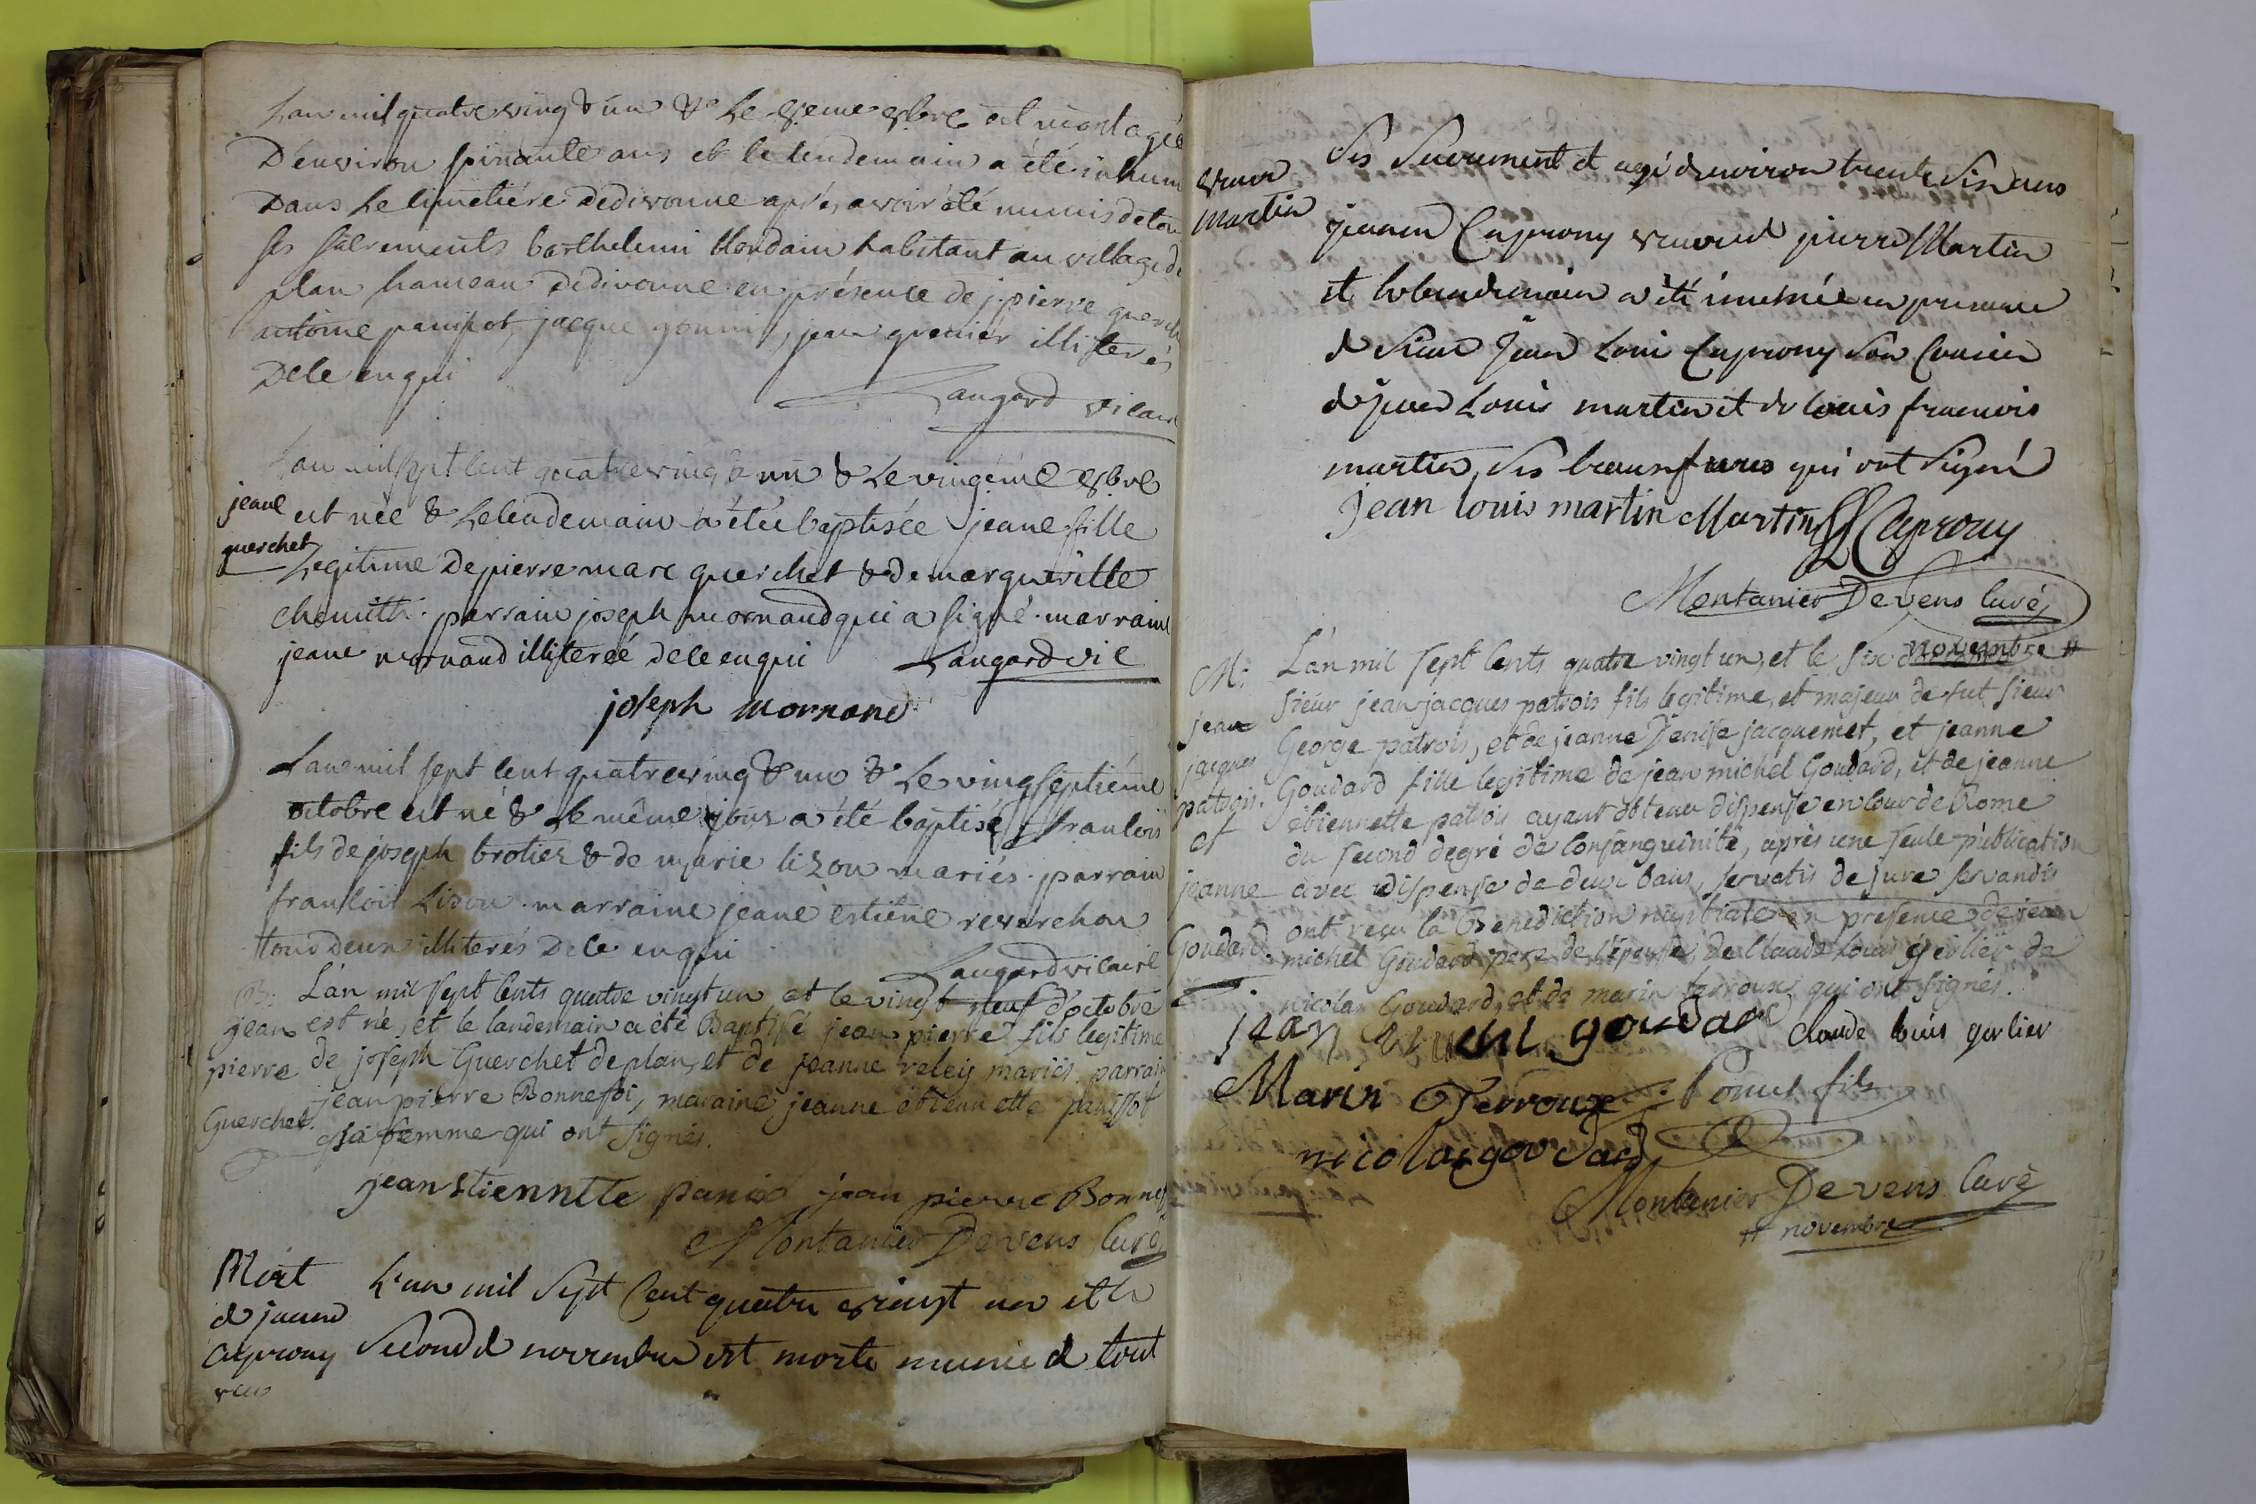 Lan mil quatre ving & un & Le 8eme 8bre est mort agé
D'environ soisante ans et le lendemain a été inhum
Dans Le simetiére dedivonne apré, avoir été munis de tou
ses sacrements barthelemi blondain habitant au village de
plan hameau dedivonne en présence de j. pierre guerch
antoine panissot, jacque gonni, jean grenier illiterés
Dele enqui
Laugard vicair
Lan mil sept cent quatreving & un & Le vingéme 8bre
jeane
est née & Lelendemain a étée baptisée jeane fille
guerchet
Legitime De pierre marc guerchet & de margueritte
chenitti. parrain joseph mornand qui a signé. marraine
jeane mornand illiterée dele enqui Laugard vic
joseph mornand
Lan mil sept cent quatreving & un & Le vingseptiéme
octobre est né & Le même jour a été baptisé francois
fils de joseph brotier & de marie lizon mariés. parrain
francois Lison. marraine jeane estiéne reverchon
tous deux illiterés Dele enqui
Laugard vicaire
B: L'an mil sept cents quatre vingt un et le vingt neuf d'octobre
jean est né, et le landemain a été Baptisé jean pierre fils legitime
pierre de joseph Guerchet de plan, et de jeanne veley mariés. parrain
jean pierre Bonnefoi, maraine jeanne étiennette panissot
Guerchet. sa femme qui ont signés.
jean Etiennette panis jean pierre Bonnef
Montanier Devens Curé
Mort L'an mil Sept Cent quatre vingt un et le
de jeanne
Caprony Second de novembre est morte munie de tout
veu
Ses Sacrement et agé denviron trente Six ans
veuve
martin
jeanne Caprony veuve de pierre Martin
et le lendemain a été inumée en presence
de Sieur Jean Loui Caprony Son Cousin
de jean Louis martin et de Louis francois
martin, ses beaux freres qui ont Signé
Jean louis martin Martin Caprony
Montanier Devens Curé
M: L'an mil sept cents quatre vingt un, et le six novembre #
jean sieur jean jacques patrois fils legitime, et majeur de fut sieur
jacques George patrois, et de jeanne Denise jacquemet, et jeanne
patrois. Goudard fille legitime de jean michel Goudard, et de jeanne
et étiennette patrois ayant obtenu dispense en Cour de Rome
du second degré de Consanguinité, après une seule publication
jeanne avec dispense de deux bans, servatis de jure servandis
ont reçu la Benediction nuptiale en presence de jean
Goudard. michel Goudard pere de l'épouse, de Claude Louis gerlier de
nicolas Goudard, et de marin terroux, qui ont signés.
jean michel goudard Claude louis gerlier
Marin Terroux fils
nicolas goudard
Montanier Devens Curé
# novembre